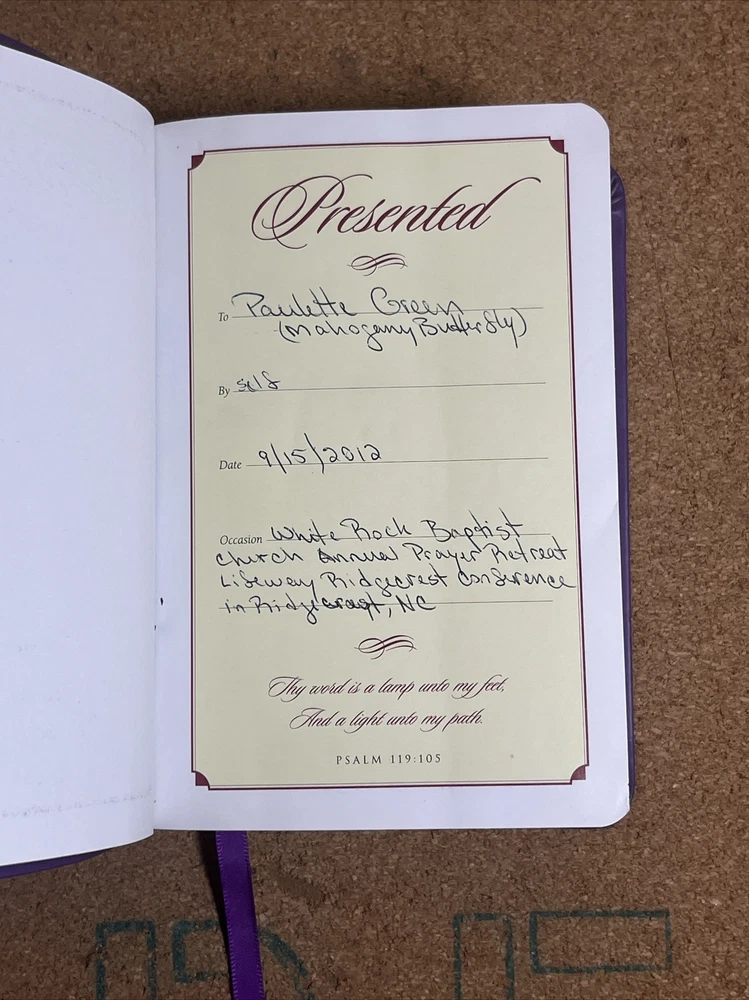 Presented
To Paulette Green
(Mahogany Butterfly)
By self
Date 9/15/2012
Occasion White Rock Baptist
Church Annual Prayer Retreat
Lifeway Ridgecrest Conference
in Ridgecrest, NC
Thy word is a lamp unto my feet,
And a light unto my path.
PSALM 119:105